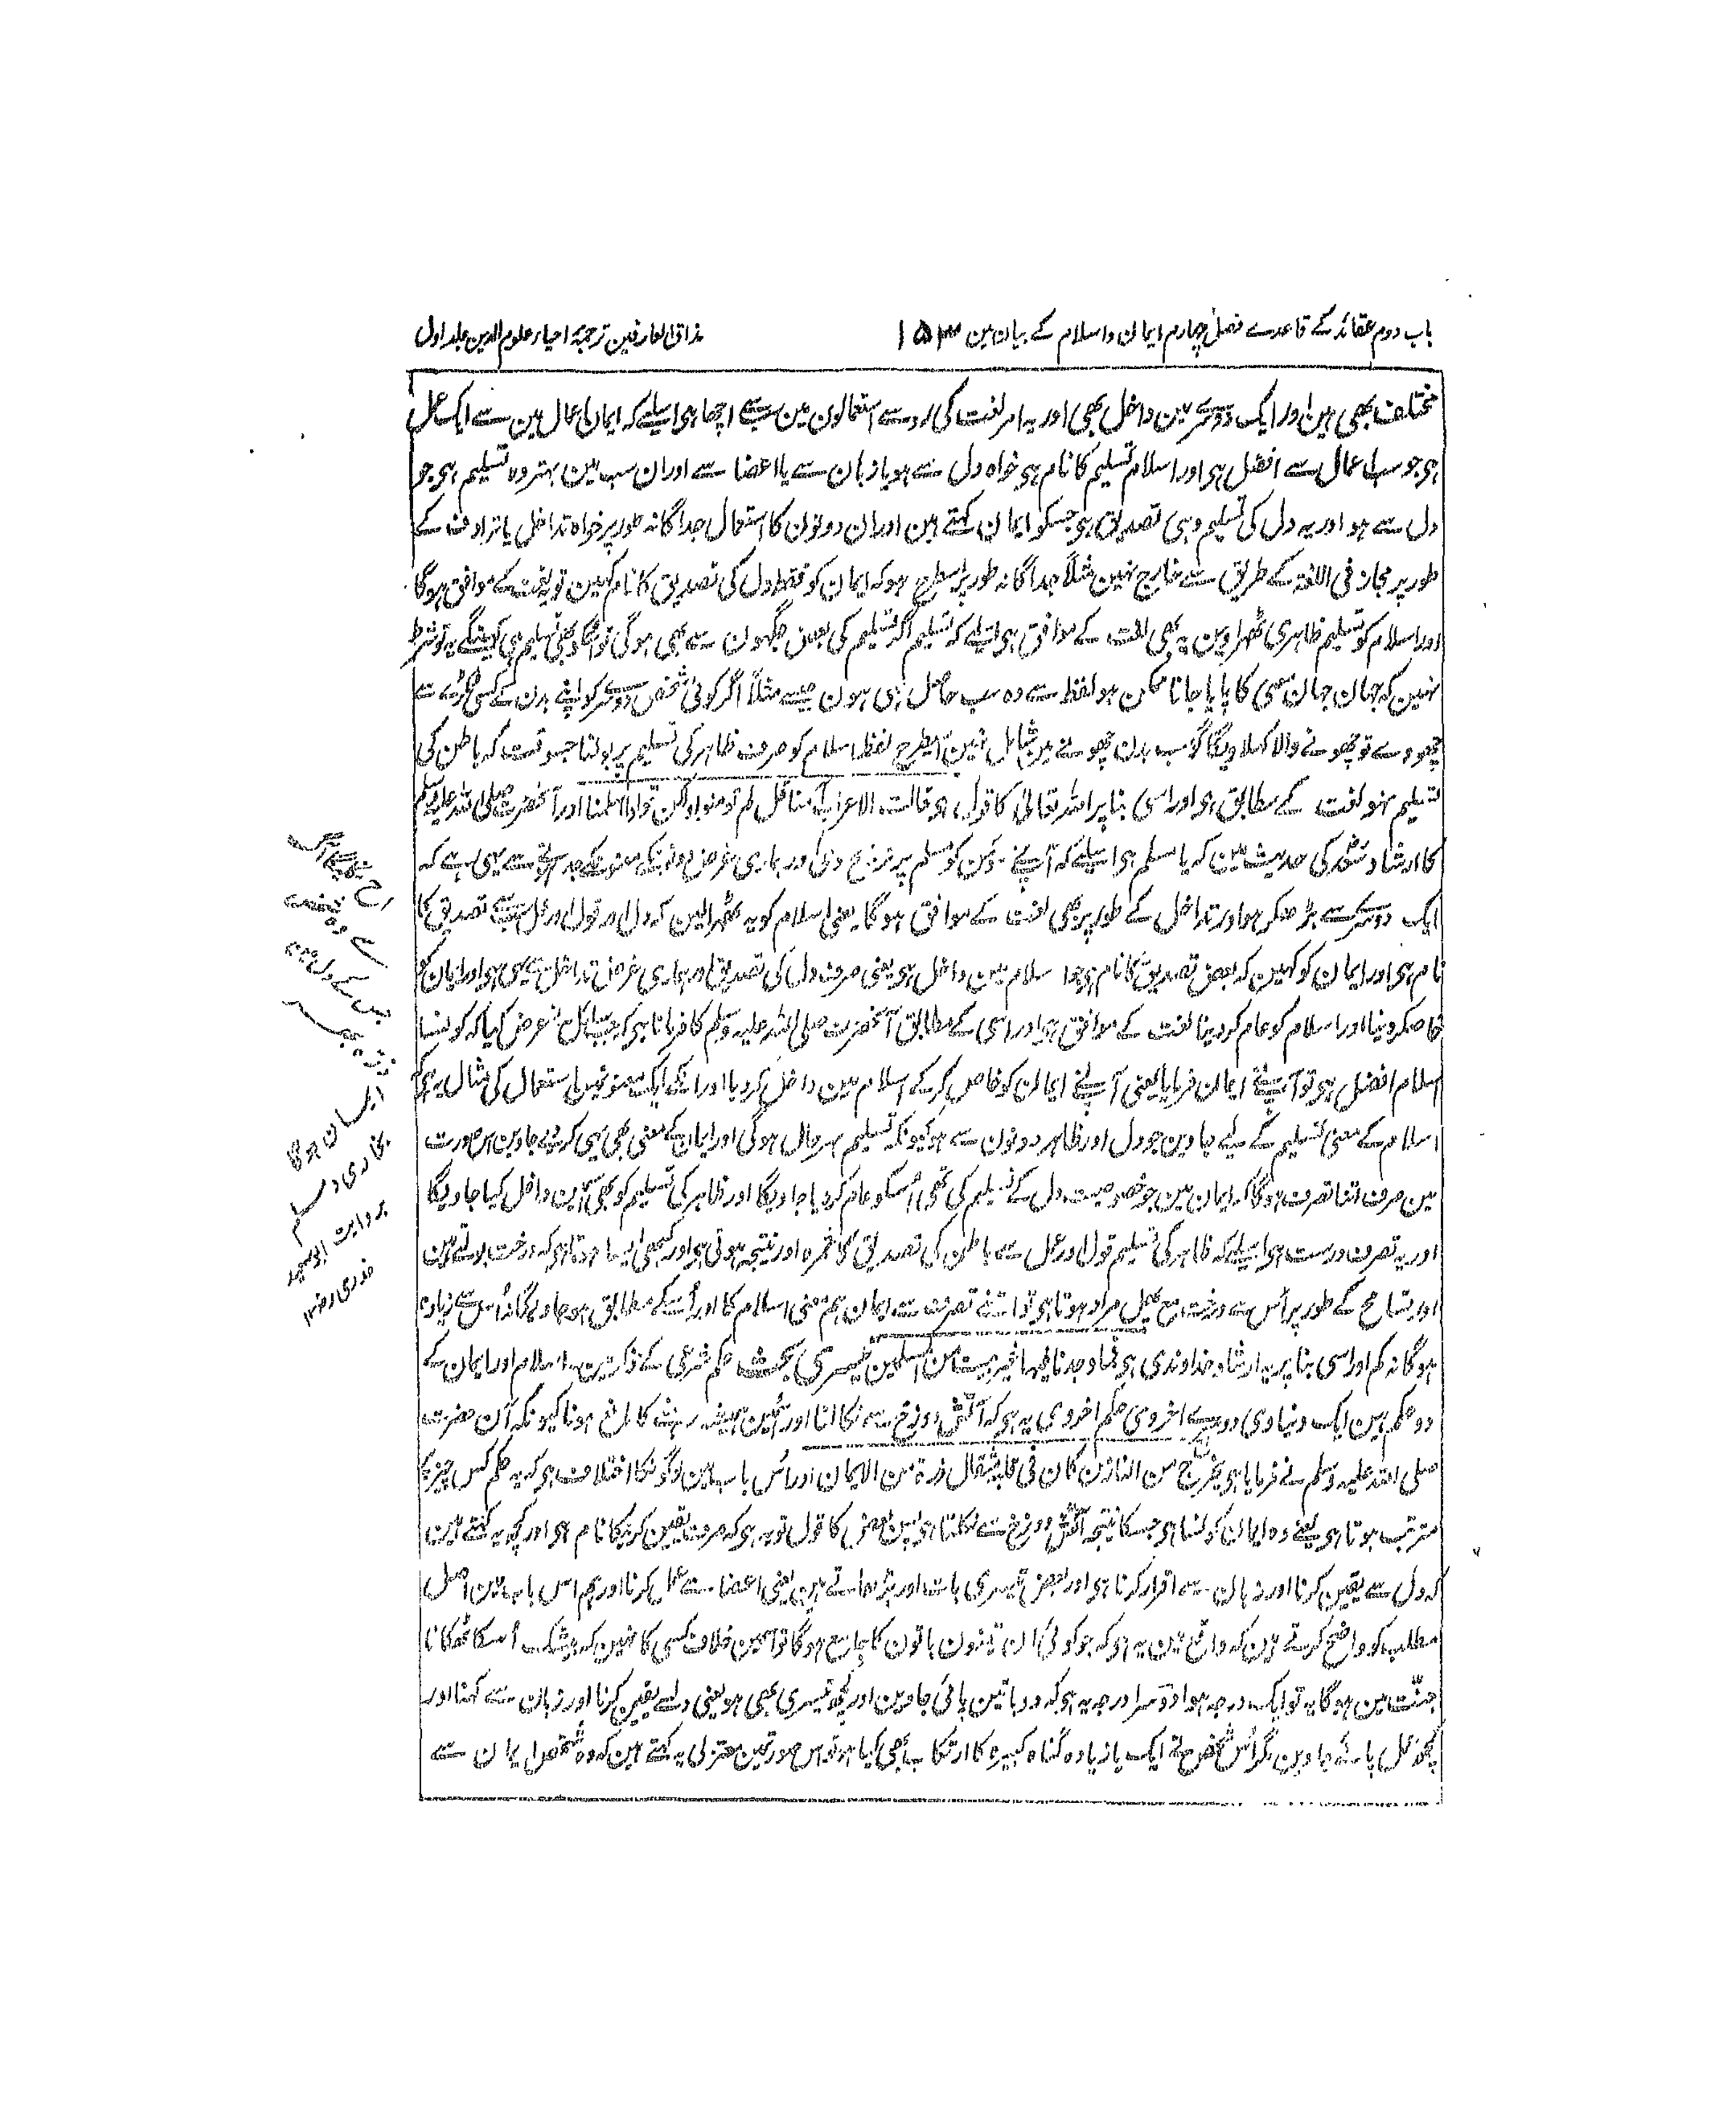 باب دوم عقائد کے قاعدے فصل چہارم ایمان و اسلام کے بیان مین ۱۵۳ مذاق العارفین ترجمۂ احیاء علوم الدین جلد اول
مختلف بھی ہین اور ایک دوسرے مین داخل بھی اور یہ امر لغت کی رو سے استعمالون مین سب سے اچھا ہی اسلیے کہ ایمان اعمال مین سے ایک عمل
ہی جو سب اعمال سے افضل ہی اور اسلام تسلیم کا نام ہی خواہ دل سے ہو یا زبان سے یا اعضا سے اور ان سب مین بہتر وہ تسلیم ہی جو
دل سے ہو اور یہ دل کی تسلیم وہی تصدیق ہی جسکو ایمان کہتے ہین اور ان دونون کا استعمال جداگانہ طور پر خواہ تداخل یا ترادف کے
طور پر مجاز فی اللغۃ کے طریق سے خارج نہین مثلاً جداگانہ طور پر اسطرح ہو کہ ایمان کو فقط دل کی تصدیق کا نام کہین تو لغت کے موافق ہوگا
اور اسلام کو تسلیم ظاہری ٹھہراوین یہ بھی لغت کے موافق ہی اسلیے کہ تسلیم اگر تسلیم کی بعض جگہون سے بھی ہوگی تو اسکو بھی تسلیم ہی کہینگے یہ تو شرط
نہین کہ جہان جہان معنی کا پایا جانا ممکن ہو لفظ سے وہ سب حاصل ہی ہون جیسے مثلاً اگر کوئی شخص دوسرے کو اپنے بدن کے کسی ٹکڑے سے
چھووے تو چھونے والا کہلاویگا گو سب بدن چھونے مین شامل نہین اسیطرح لفظ اسلام کو صرف ظاہر کی تسلیم پر بولنا جسوقت کہ باطن کی
تسلیم نہو لغت کے مطابق ہی اور اسی بنا پر اللہ تعالیٰ کا قول ہی وقالت الاعراب آمنا قل لم تومنوا ولکن قولوا اسلمنا اور آنحضرت صلی اللہ علیہ وسلم
کا ارشاد سعد کی حدیث مین کہ یا مسلم ہی اسلیے کہ آپنے مومن کو مسلم پر ترجیح دی اور ہماری غرض دونونکے معنونکے جدا ہونے سے یہی ہے کہ
ایک دوسرے سے بڑھکر ہو اور تداخل کے طور پر بھی لغت کے موافق ہوگا یعنی اسلام کو یہ ٹھہرالین کہ دل اور قول اور عمل سب سے تصدیق کا
نام ہی اور ایمان کو کہین کہ بعض تصدیق کا نام ہی جو اسلام مین داخل ہی یعنی صرف دل کی تصدیق اور ہماری غرض تداخل سے یہی ہی اور ایمان کو
خاص کردینا اور اسلام کو عام کردینا لغت کے موافق ہی اور اسی کے مطابق آنحضرت صلی اللہ علیہ وسلم کا فرمانا ہی کہ جب سائل نے عرض کیا کہ کونسا
اسلام افضل ہی تو آپنے ایمان فرمایا یعنی آپنے ایمان کو خاص کرکے اسلام مین داخل کردیا اور انکے ایک معنونمین استعمال کی مثال یہ ہی کہ
اسلام کے معنی تسلیم کے لیے جاوین جو دل اور ظاہر دونون سے ہو کیونکہ تسلیم بہرحال ہوگی اور ایمان کے معنی بھی یہی کر لیے جاوین اس صورت
مین صرف اتنا تصرف ہوگا کہ ایمان مین جو خصوصیت دل کے تسلیم کی تھی اسکو عام کردیا جاویگا اور ظاہر کی تسلیم کو بھی اسمین داخل کیا جاویگا
اور یہ تصرف درست ہی اسلیے کہ ظاہر کی تسلیم قول اور عمل سے باطن کی تصدیق کا ثمرہ اور نتیجہ ہوتی ہی اور کبھی ایسا ہوتا ہی کہ درخت بولتے ہین
اور تسامح کے طور پر اُس سے درخت مع پھل مراد ہوتا ہی تو اتنے تصرف سے ایمان ہم معنی اسلام کا اور اُسکے مطابق ہوجاویگا نہ اُس سے زیادہ
ہوگا نہ کم اور اسی بنا پر یہ ارشاد خداوندی ہی فما وجدنا فیہا غیر بیت من المسلمین تیسری بحث حکم شرعی کے ذکر مین اسلام اور ایمان کے
دو حکم ہین ایک دنیاوی دوسرے اخروی حکم اخروی یہ ہی کہ آتش دوزخ سے نکالنا اور اُسمین ہمیشہ رہنے کا مانع ہونا کیونکہ آن حضرت
صلی اللہ علیہ وسلم نے فرمایا ہی یخرج من النار من کان فی قلبہ مثقال ذرۃ من الایمان اور اس باب مین لوگونکا اختلاف ہی کہ یہ حکم کس چیز پر
مترتب ہوتا ہی یعنے وہ ایمان کونسا ہی جسکا نتیجہ آتش دوزخ سے نکلنا ہی پس بعض کا قول تو یہ ہی کہ صرف یقین کرنیکا نام ہی اور کچھ یہ کہتے ہین
کہ دل سے یقین کرنا اور زبان سے اقرار کرنا ہی اور بعض تیسری بات اور بڑھاتے ہین یعنی اعضا سے عمل کرنا اور ہم اس باب مین اصل
مطلب کو واضح کرتے ہین کہ واقع مین یہ ہی کہ جو کوئی ان تینون باتون کا جامع ہوگا تو اسمین خلاف کسی کا نہین کہ بیشک اُسکا ٹھکانا
جنّت مین ہوگا یہ تو ایک درجہ ہوا دوسرا درجہ یہ ہی کہ دو باتین پائی جاوین اور کچھ تیسری بھی ہو یعنی دلسے یقین کرنا اور زبان سے کہنا اور
کچھ عمل پائے جاوین مگر اُس شخص نے ایک یا زیادہ گناہ کبیرہ کا ارتکاب بھی کیا ہو تو اس صورتمین معتزلی یہ کہتے ہین کہ وہ شخص ایمان سے
سے وہ شخص
جس کے دل مین
ایمان ہوگا
بخاری و مسلم
بروایت ابو سعید
خدری رض ۱۲